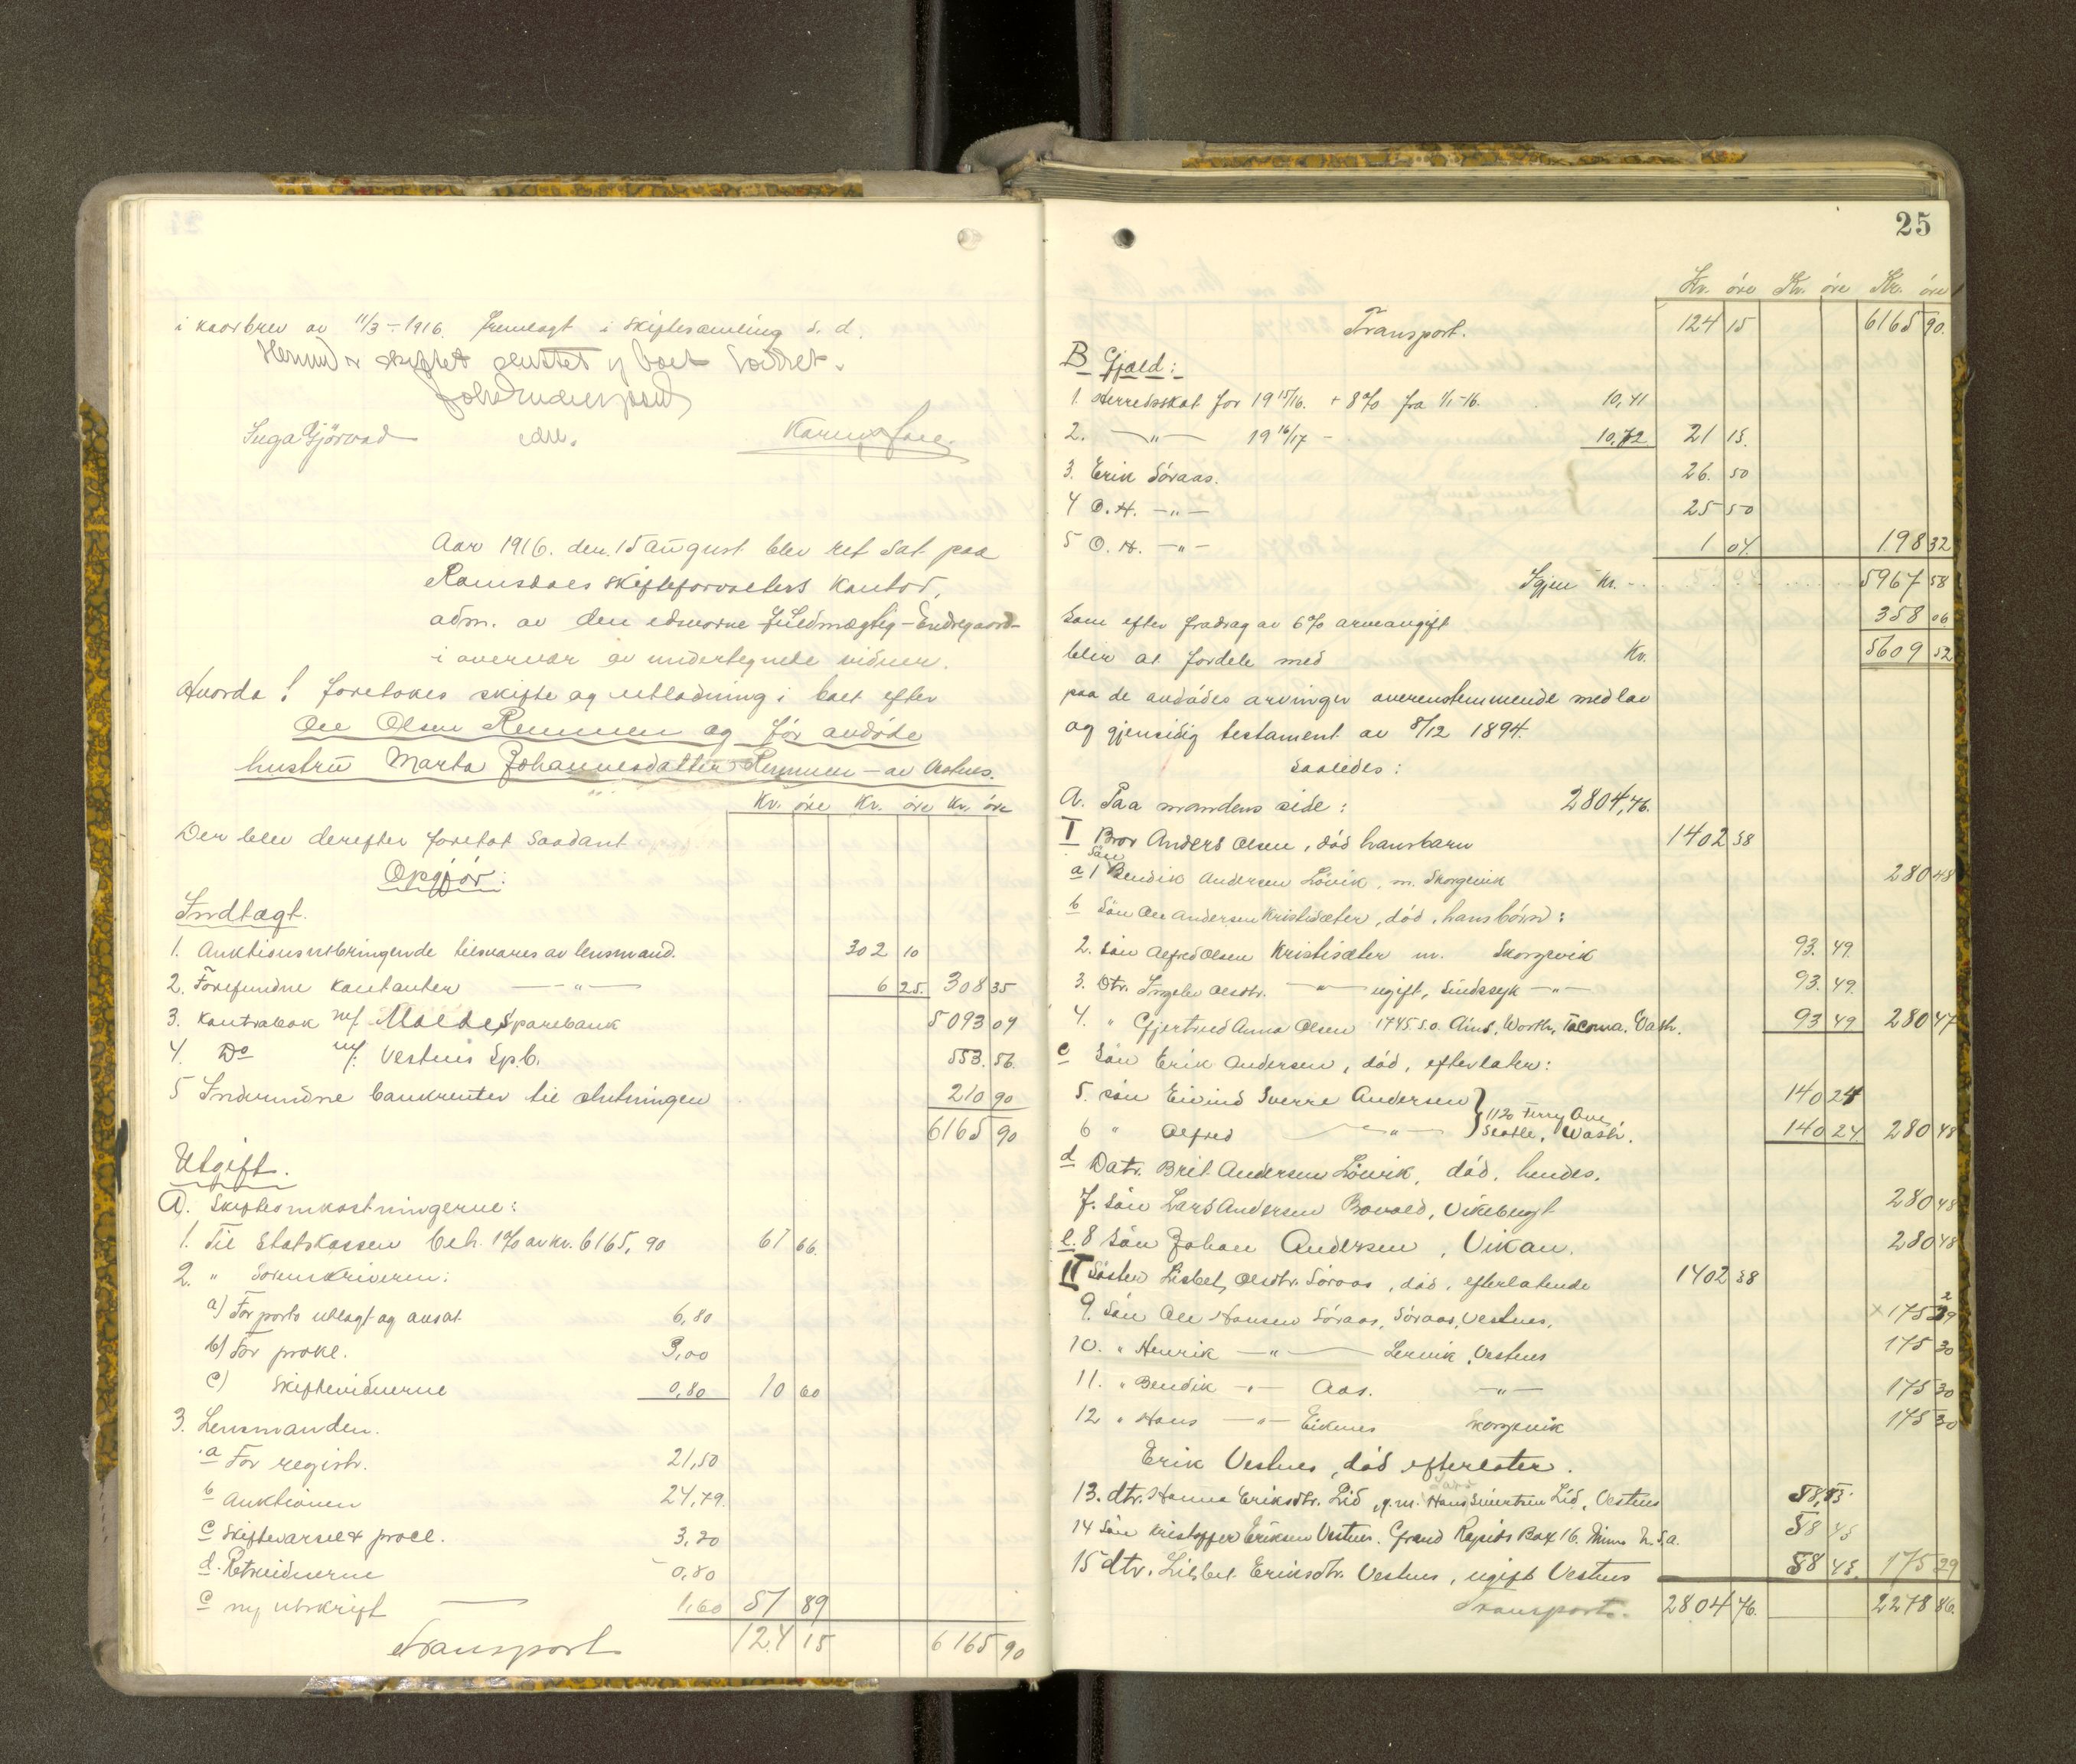 i kaarbrev av 11/3-1916. fremlagt i skiftesamling s. d.
Hermed er skiftet sluttet og boet
Inga Gjörvad edsv.
Aar 1916. den. 15 august blev ret sat paa
Romsdals skifteforvalters kontor,
adm. av den edsvorne fuldmægtig Endregaard
i overvær av undertegnede vidner.
Hvorda! foretokes skifte og utlodning i boet efter
Ole Olsen Remmen og før avdöde
hustru Marta Johannesdatter Remmen – av Vestnes.
Kr. öre Kr. öre Kr. öre
Der blev derefter foretat saadant
Opgjör:
Indtægt.
1. Auktionsutbringende tilsvares av lensmand. 302 10
2. Forefundne kontanter —"— 6 25. 308 35
3. Kontrabok m/ Molde Sparebank 5093 09
4. Do m/ Vestnes Spb. 553. 56.
5 Indvundne bankrenter til slutningen 210 90
6165 90
Utgift.
A. Skifteomkostningerne:
1. Til Statskassen beh. 1% av kr. 6165, 90 61 66.
2. " Sorenskriveren:
a) For porto utlagt og ansat 6,80
b) For prokl. 3,00
c) Skiftevidnerne 0,80 10 60
3. Lensmanden.
a For registr. 21,50
b Auktionen 24,79.
c Skiftevarsel & procl. 3,20
d. Retsvidnerne 0,80
e ny utskrift — 1,60 51 89
Transport 124 15 6165 90
25
Kr. öre Kr. öre Kr. öre
Transport. 124 15 6165 90.
B Gjæld:
1. Herredsskat for 19 15/16. + 8% fra 1/1-16. 10,41
2. —"— 19 16/17 - 10,72 21 13.
3. Erik Söraas. 26. 50
4 O. H. —"— 25 50
5 O. H. —"— 1 04. 198 32
Igjen Kr. 5967 58
Som efter fradrag av 6% arveavgift 358 06
blir at fordele med Kr. 5609 52
paa de avdödes arvinger overensstemmende med lov
og gjensidig testament av 8/12 1894.
saaledes:
A. Paa mandens side: 2804,76.
I Bror Anders Olsen, död hans barn 1402 38
a 1 Sön Bendik Andersen Lövik. m. Skorgevik 280 48
b Sön Ole Andersen Kristisæter, död, hans börn:
2. Sön Alfred Olsen Kristisæter m. Skorgevik 93. 49.
3. Dtr. Ingeborg Olsdtr. —"— ugift, Sindssyk —"— 93. 49.
4. " Gjertrud Anna Olsen 1745 S.O. Ains. Worth, Tacoma. Wash. 93 49 280 47
c Sön Erik Andersen, död, efterlater:
5. sön Eivind Sverre Andersen 140 24
6 " Alfred —"— } 1120 Terry Ave Seatle, Wash. 140 24 280 48
d Datr. Brit Andersen Lövik, död, hendes.
7. Sön Lars Andersen Bovold, Vikebugt 280 48
e. 8 Sön Johan Andersen, Vikan. 280 48
II Söster Lisbet Olsdtr. Söraas, död, efterlatende 1402 38
9. Sön Ole Hansen Söraas, Söraas, Vestnes. x 175 29
10. " Henrik —"— Lervik, Vestnes 175 30
11. " Bendik —"— Aas. —"— 175 30
12 " Hans —"— Eiknes Skorgevik 175 30
Erik Vestnes, död efterlater.
13. dtr. Hanna Eriksdtr. Lid, g. m. Hans Sivertsen Lid, Vestnes 58,43
14 Sön Kristoffer Eriksen Vestnes. Grand Rapids Box 16. Minn U.S.a. 58 43
15 dtr. Lisbet Eriksdtr. Vestnes, ugift Vestnes 58 43. 175 29
Transport. 2804 76. 2278 86.